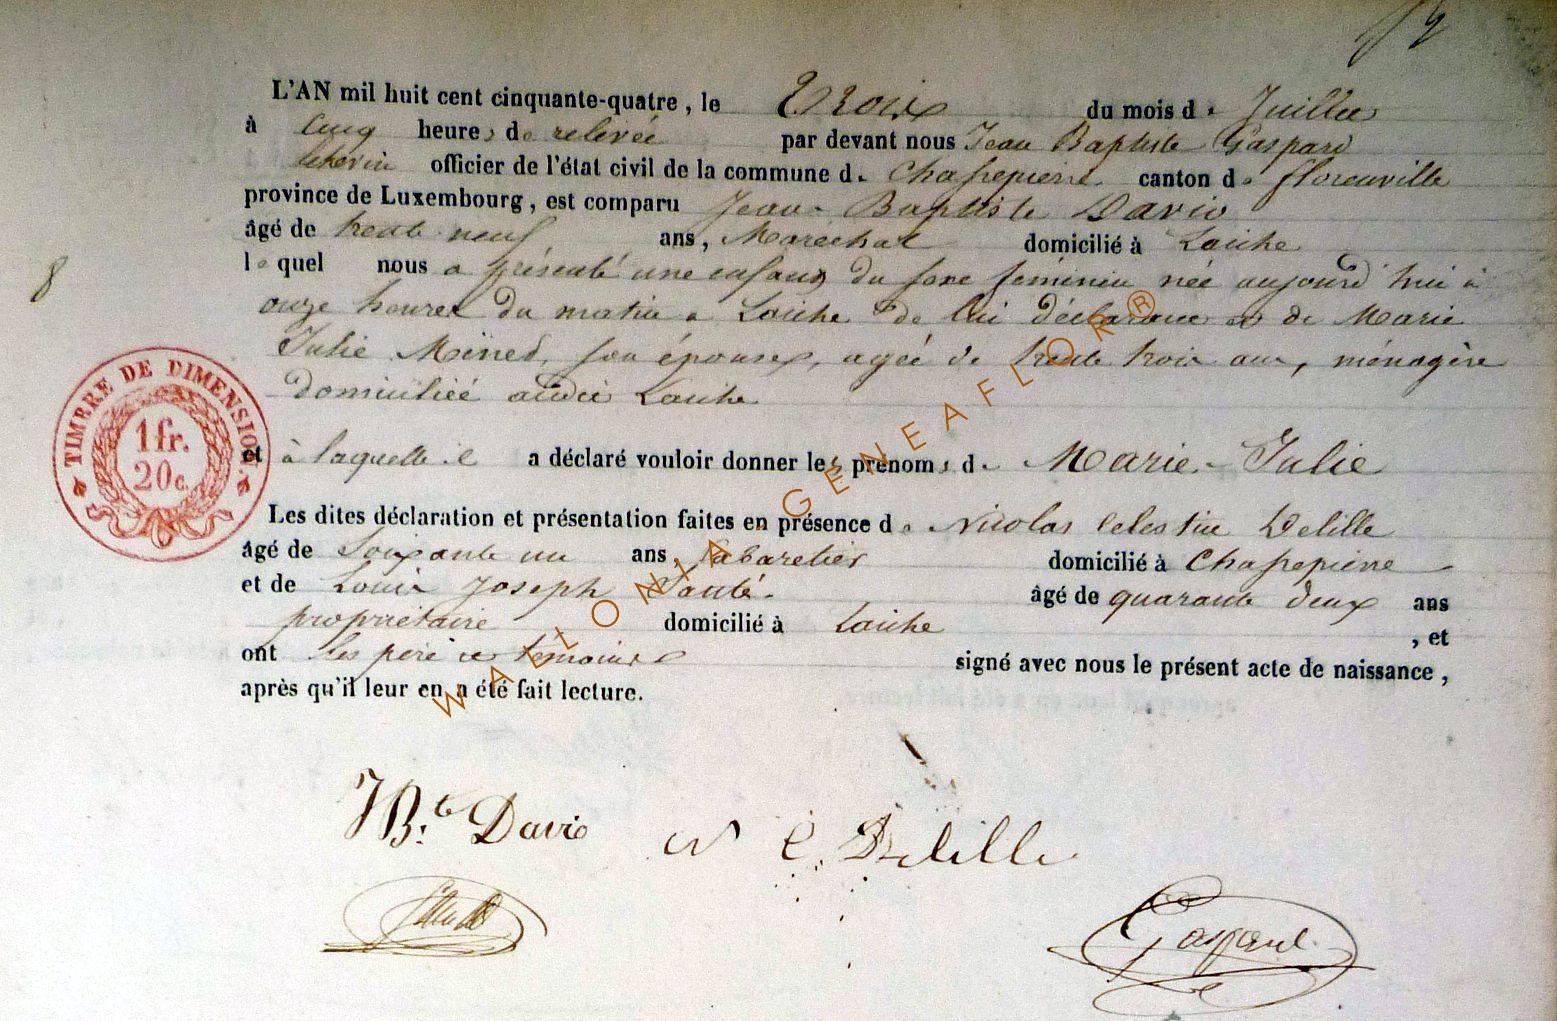 L'AN mil huit cent cinquante-quatre, le Trois du mois de Juillet
à cinq heures de relevée par devant nous Jean Baptiste Gaspard
échevin officier de l'état civil de la commune de Chassepierre canton de florenville
province de Luxembourg, est comparu Jean-Baptiste David
âgé de trente neuf ans, Maréchal domicilié à Laiche
lequel nous a présenté une enfant du sexe féminin née aujourd'hui à
onze heures du matin à Laiche de lui déclarant et de Marie
Julie son épouse, agée de trente trois ans, ménagère
domiciliée audit Laiche
et à laquelle il a déclaré vouloir donner les prénoms de Marie-Julie
Les dites déclaration et présentation faites en présence de Nicolas Celestin Delille
âgé de Soixante un ans, Cabaretier domicilié à Chassepierre
et de Louis Joseph âgé de quarante deux ans
propriétaire domicilié à Laiche , et
ont les père et témoins signé avec nous le présent acte de naissance,
après qu'il leur en a été fait lecture.
8
TIMBRE DE DIMENSION.
1 fr.
20 c.
JBte David
N C. Delille
Gaspard
WALLONIA - GENEAFLOR®